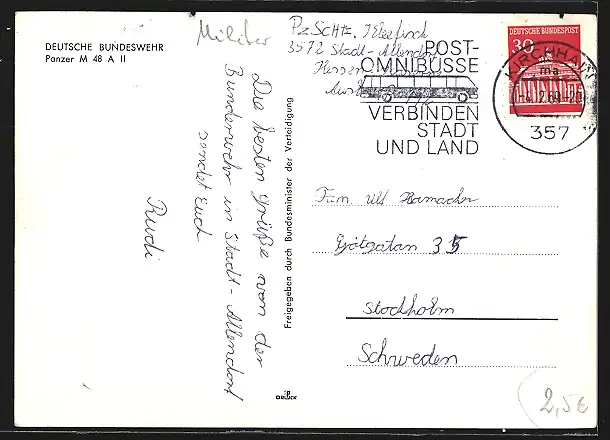 DEUTSCHE BUNDESWEHR
Panzer M 48 A II
Militär
Die besten Grüße von der
Bundeswehr in Stadt-Allendorf
sendet Euch
Rudi
Freigegeben durch Bundesminister der Verteidigung
Pz
3572 Stadt-Allendorf
Hessen
POST-
OMNIBUSSE
VERBINDEN
STADT
UND LAND
30
DEUTSCHE BUNDESPOST
KIRCHHAIN
ma
357
Fam.
35
Stockholm
Schweden
2,5€